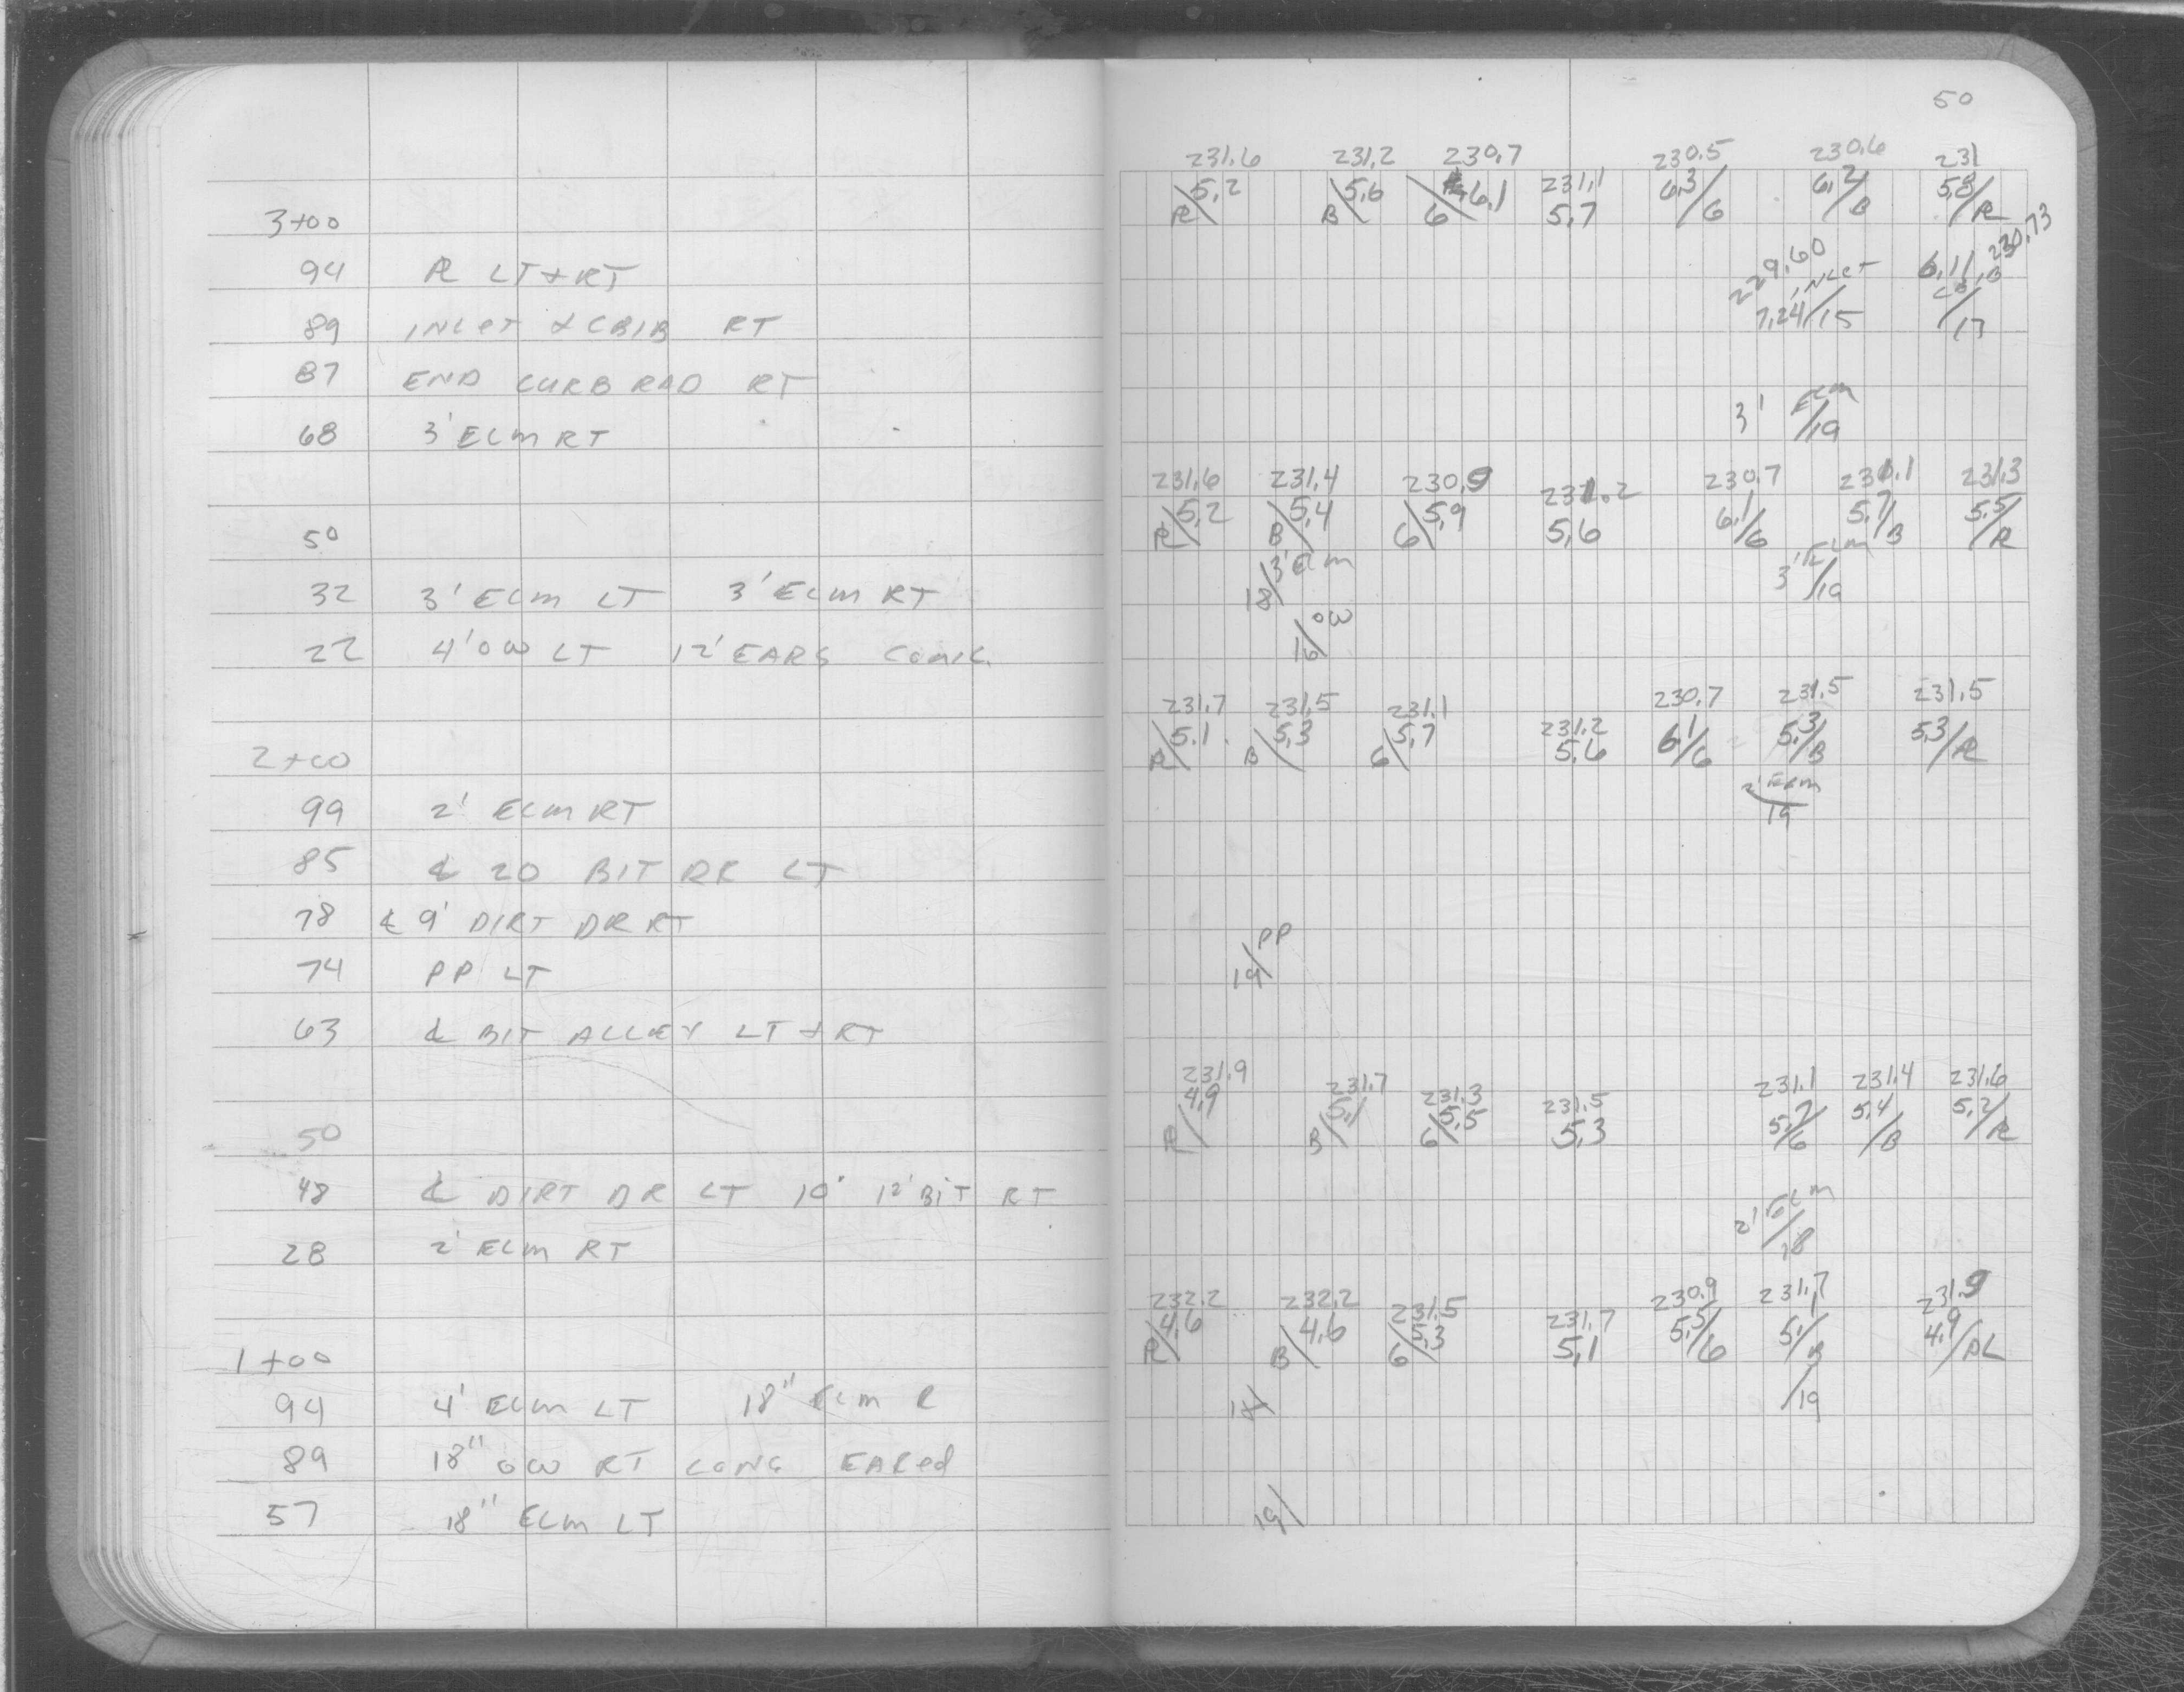 3+00
94 PL LT & RT
89 INLET & CBIB RT
87 END CURB RAD RT
68 3' ELM RT
50
32 3' ELM LT 3' ELM RT
22 4' OW LT 12' EARS
2+00
99 2' ELM RT
85 ℄ 20 BIT DR LT
78 ℄ 9' DIRT DR RT
74 PP LT
63 ℄ BIT ALLEY LT & RT
50
48 ℄ DIRT DR LT 10' 12' BIT RT
28 2' ELM RT
1+00
94 4' ELM LT 18" ELM R
89 18" OW RT LONG EARed
57 18" ELM LT
50
231.6 231.2 230.7 231.1 230.5 230.6 231
PL\5.2 B\5.6 6\6.1 5.7 6.3/6 6.2/B 5.8/PL
229.60 INLET 6.11 230.73
7.24/15 CB.B /17
3' ELM /19
231.6 231.4 230.9 231.2 230.7 231.1 231.3
PL\5.2 B\5.4 6\5.9 5.6 6.1/6 5.7/B 5.5/PL
18/3' ELM 3' ELM /19
16/OW
231.7 231.5 231.1 231.2 230.7 231.5 231.5
PL\5.1 B\5.3 6\5.7 5.6 6.1/6 5.3/B 5.3/PL
2' ELM /19
19/PP
231.9 231.7 231.3 231.5 231.1 231.4 231.6
PL\4.9 B\5.1 6\5.5 5.3 5.7/6 5.4/B 5.2/PL
2' ELM /18
232.2 232.2 231.5 231.7 230.9 231.7 231.9
PL\4.6 B\4.6 6\5.3 5.1 5.5/6 5.1/B 4.9/PL
18/ /19
19/